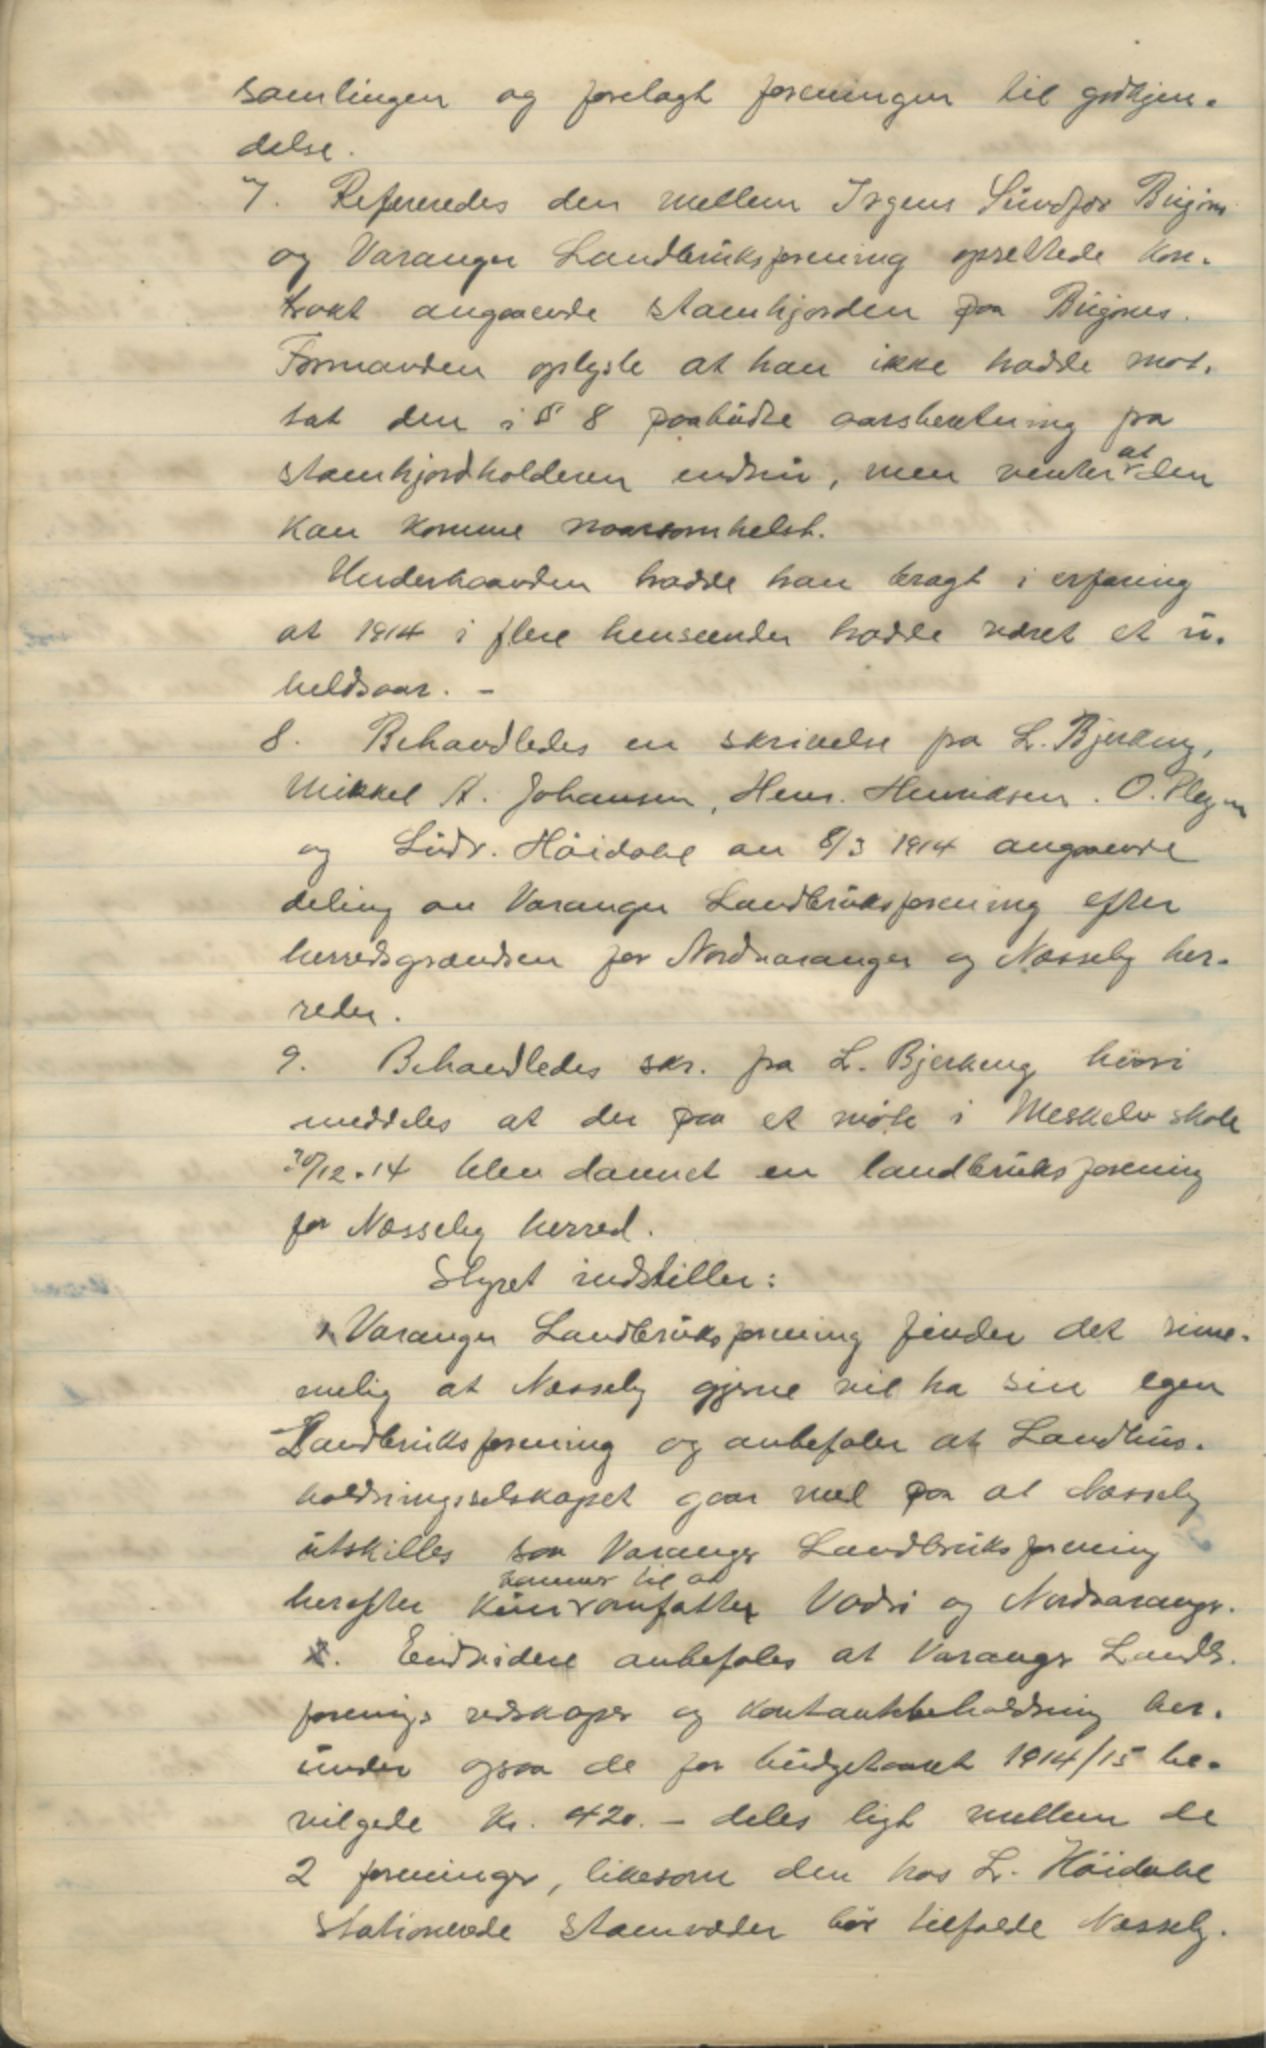 samlingen og forelagt foreningen til godkjen-
delse.
7. Refereredes den mellem Irgens Sundfær Bugønes
og Varanger Landbruksforening oprettede kon-
trakt angaaende stamhjorden paa Bugønes.
Formanden oplyste at han ikke hadde mot-
tat den i § 8 paabudte aarsberetning fra
stamhjordholderen endnu, men venter at den
kan komme naarsomhelst.
Underhaanden hadde han bragt i erfaring
at 1914 i flere henseender hadde været et u-
heldsaar. -
8. Behandledes en skrivelse fra L. Bjerkeng,
Mikkel A. Johansen, Henr. Henriksen. O.
og Ludv. Höidahl av 8/3 1914 angaaende
deling av Varanger Landbruksforening efter
herredsgrændsen for Nordvaranger og Næsseby her-
reder.
9. Behandledes skr. fra L. Bjerkeng hvori
meddeles at der paa et møte i Meskelv skole
30/12-14 blev dannet en landbruksforening
for Næsseby herred.
Styret indstiller:
1. Varanger Landbruksforening finder det rime-
melig at Næsseby gjerne vil ha sin egen
Landbruksforening og anbefaler at Landhus-
holdningsselskapet gaar med paa at Næsseby
utskilles saa Varanger Landbruksforening
herefter kun kommer til at omfatte Vadsö og Nordvaranger.
2. Endvidere anbefales at Varanger Landb.
forenings redskaper og kontantbeholdning her-
under ogsaa de for budgetaaret 1914/15 be-
vilgede kr. 420.- deles likt mellem de
2 foreninger, likesom den hos L. Höidahl
stationerede stamvæder bör tilfalde Næsseby.